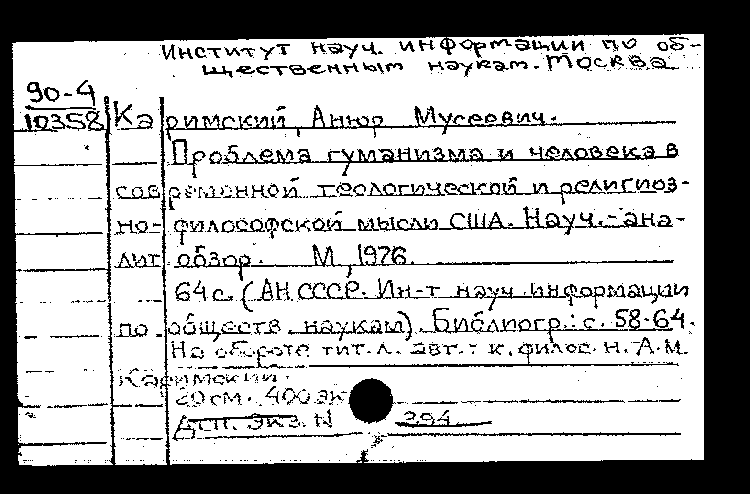 Институт науч. информации по об-
щественным наукам. Москва
90-4
10358
Каримский, Анюр Мусеевич.
Проблема гуманизма и человека в
современной теологической и религиоз-
но-философской мысли США. Науч.-ана-
лит. обзор. М., 1976.
64 с. (АН СССР. Ин-т науч. информации
по обществ. наукам). Библиогр.: с. 58-64.
На обороте тит. л. авт.: к. филос. н. А. М.
Каримский.
20 см. 400 эк
Дсп. Экз. N 394